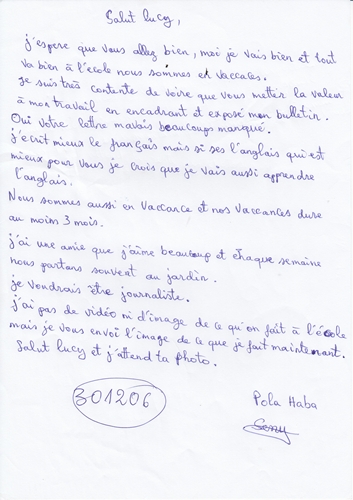 Salut Lucy,
j'espere que vous allez bien, moi je vais bien et tout
va bien à l'école nous sommes en vaccales.
Je suis très contente de voire que vous metter la valeur
à mon travail en encadrant et exposé mon bulletin.
Oui votre lettre m'avais beaucoups manqué.
j'ecrit mieux le français mais si ses l'anglais qui est
mieux pour vous je crois que je vais aussi apprendre
l'anglais.
Nous sommes aussi en vaccance et nos vaccances dure
au moins 3 mois.
j'ai une amie que j'aime beaucoup et chaque semaine
nous partons souvent au jardin.
je voudrais être journaliste.
j'ai pas de vidéo ni d'image de ce qu'on fait à l'école
mais je vous envoi l'image de ce que je fait maintenant.
Salut Lucy et j'attend ta photo.
301206
Pola Haba